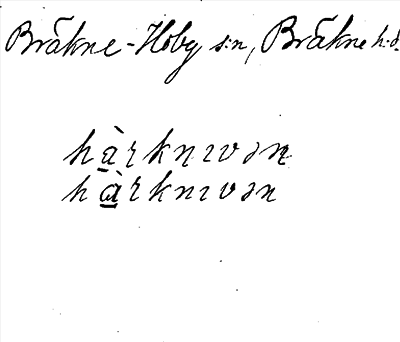 Bräkne-Hoby s:n, Bräkne h:d.
hàrknɪvən
hàrknɪvən